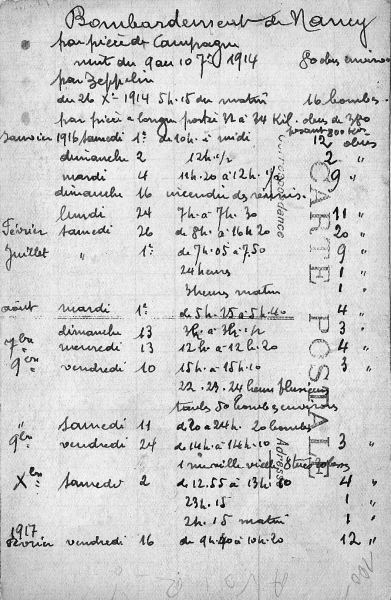 Bombardement de Nancy
par pièce de Campagne
nuit du 9 au 10 7bre 1914 80 obus environ
par Zeppelin
du 26 Xbre 1914 5h.15 du matin 16 bombes
par pièce a longue portée 32 a 34 Kil. obus de 380
pesant 800 kilr
Janvier 1916 samedi 1er de 10h. à midi 12 obus
dimanche 2 12h. 1/2 2 "
mardi 4 11h.20 a 12h. 1/2 9 "
dimanche 16 incendie des
lundi 24 7h. a 7h. 30 11 "
Février samedi 26 de 8h. a 16h.20 20 "
Juillet " 1er de 7h.05 a 7.50 9 "
24 heures 1 "
3 heures matin 1 "
août mardi 1er de 5h.25 a 5h.40 4 "
dimanche 13 3h. a 3h. 1/2 3 "
7bre mercredi 13 12h. a 12h.20 4 "
9bre vendredi 10 15h. a 15h.10 3 "
22 . 23 . 24 heures plusieurs
50 bombes environs
" samedi 11 de 20 a 24h. 20 bombes
9bre vendredi 24 de 14h. a 14h.10 3 "
1
Xbre samedi 2 de 12.55 a 13h.30 4 "
23h.15 1 "
2h.15 matin 1 "
1917
Février vendredi 16 de 9h.40 a 10h.20 12 "
CARTE POSTALE
Correspondance
Adresse